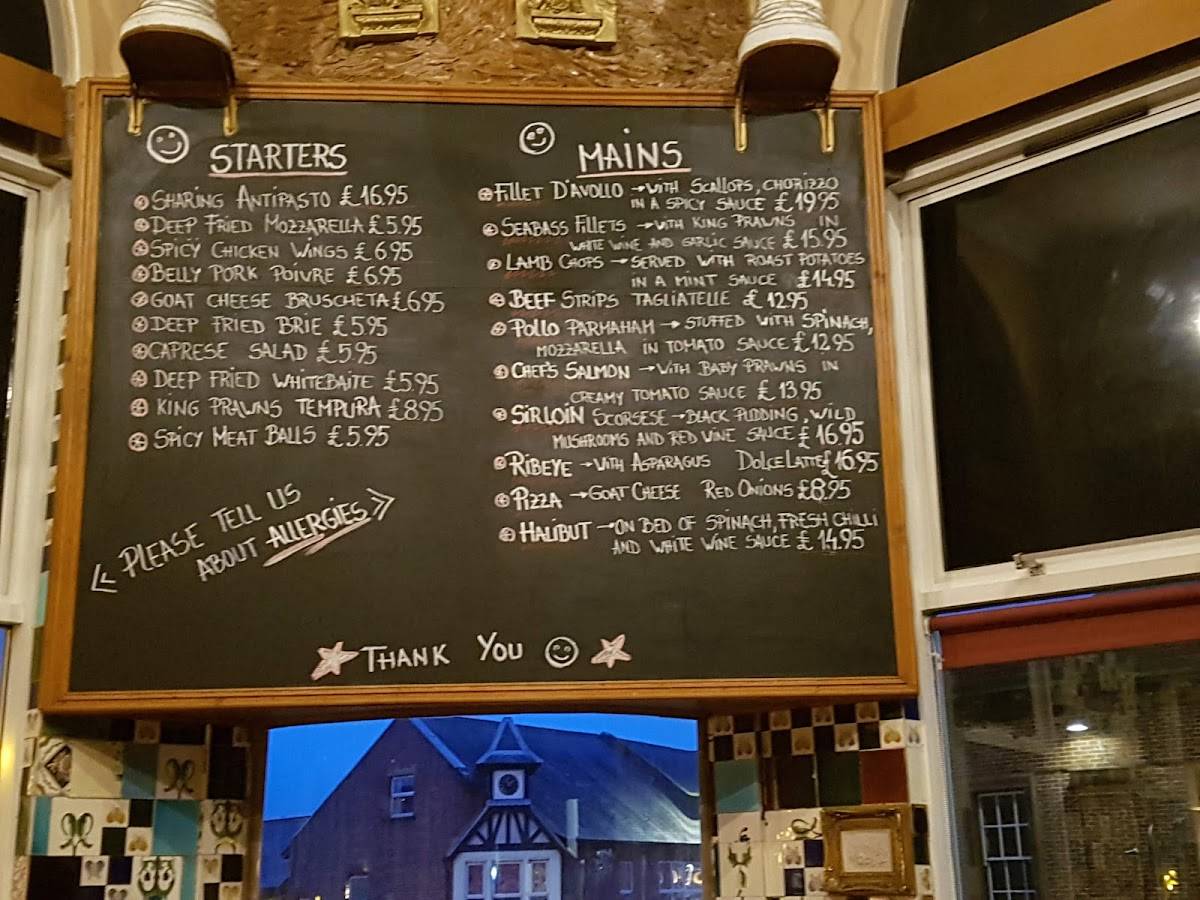 STARTERS
SHARING ANTIPASTO £16.95
DEEP FRIED MOZZARELLA £5.95
SPICY CHICKEN WINGS £6.95
BELLY PORK POIVRE £6.95
GOAT CHEESE BRUSCHETA £6.95
DEEP FRIED BRIE £5.95
CAPRESE SALAD £5.95
DEEP FRIED WHITEBAITE £5.95
KING PRAWNS TEMPURA £8.95
SPICY MEAT BALLS £5.95
PLEASE TELL US
ABOUT ALLERGIES
MAINS
FILLET D'AVOLLO → WITH SCALLOPS, CHORIZZO
IN A SPICY SAUCE £19.95
SEABASS FILLETS → WITH KING PRAWNS IN
WHITE WINE AND GARLIC SAUCE £15.95
LAMB CHOPS → SERVED WITH ROAST POTATOES
IN A MINT SAUCE £14.95
BEEF STRIPS TAGLIATELLE £12.95
POLLO PARMAHAM → STUFFED WITH SPINACH,
MOZZARELLA IN TOMATO SAUCE £12.95
CHEF'S SALMON → WITH BABY PRAWNS IN
CREAMY TOMATO SAUCE £13.95
SIRLOIN SCORSESE → BLACK PUDDING, WILD
MUSHROOMS AND RED WINE SAUCE £16.95
RIBEYE → WITH ASPARAGUS DOLCELATTE £16.95
PIZZA → GOAT CHEESE RED ONIONS £8.95
HALIBUT → ON BED OF SPINACH, FRESH CHILLI
AND WHITE WINE SAUCE £14.95
THANK YOU